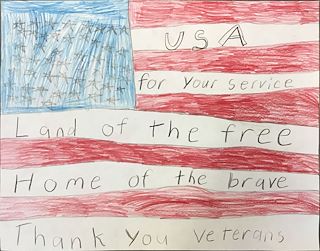 USA
for your service
Land of the free
Home of the brave
Thank you veterans